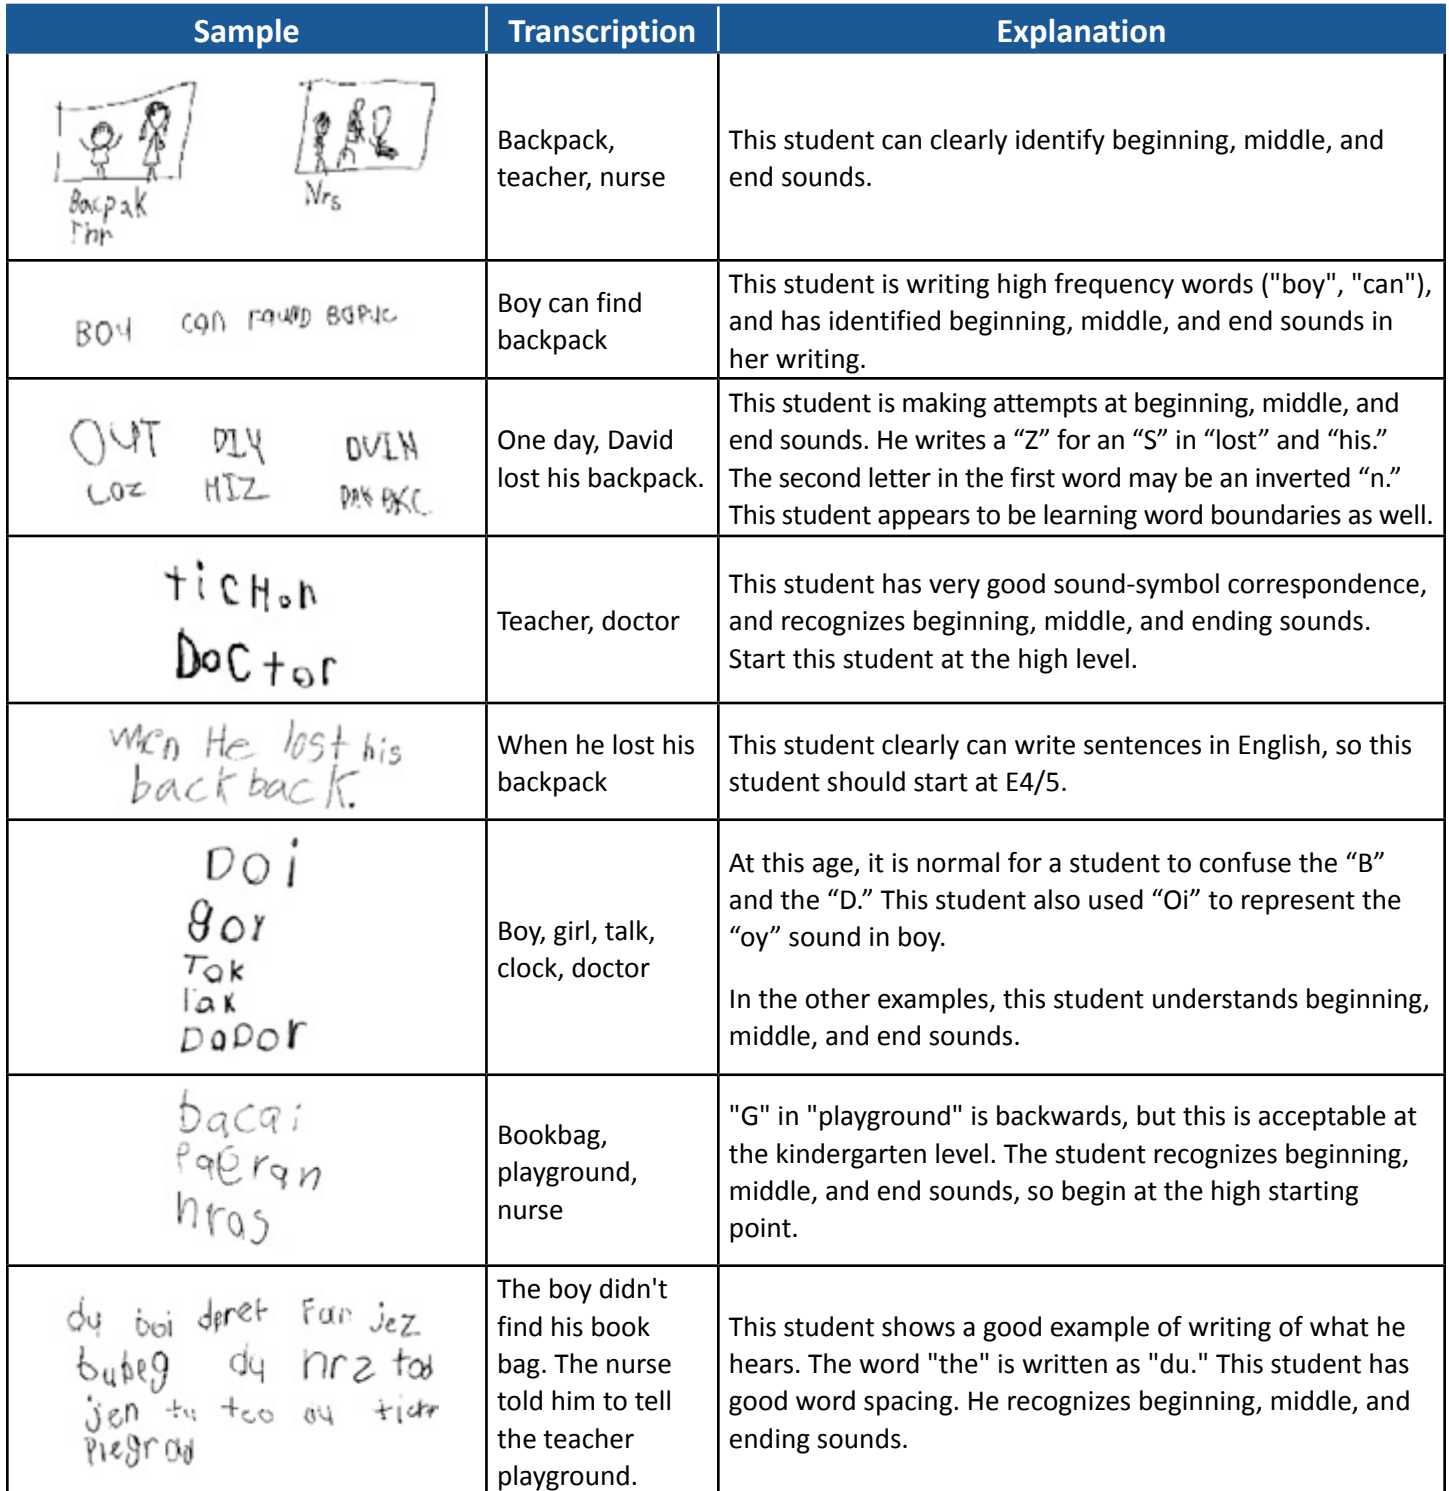 Sample Transcription Explanation
Bacpak
Nrs
Backpack,
teacher, nurse
This student can clearly identify beginning, middle, and
end sounds.
BOY can
Boy can find
backpack
This student is writing high frequency words ("boy", "can"),
and has identified beginning, middle, and end sounds in
her writing.
OUT DIY DVIN
LOZ HIZ
One day, David
lost his backpack.
This student is making attempts at beginning, middle, and
end sounds. He writes a “Z” for an “S” in “lost” and “his.”
The second letter in the first word may be an inverted “n.”
This student appears to be learning word boundaries as well.
DoCtor
Teacher, doctor
This student has very good sound-symbol correspondence,
and recognizes beginning, middle, and ending sounds.
Start this student at the high level.
He lost his
back back.
When he lost his
backpack
This student clearly can write sentences in English, so this
student should start at E4/5.
DOi
goy
Tak
DaDor
Boy, girl, talk,
clock, doctor
At this age, it is normal for a student to confuse the “B”
and the “D.” This student also used “Oi” to represent the
“oy” sound in boy.
In the other examples, this student understands beginning,
middle, and end sounds.
bacai
nras
Bookbag,
playground,
nurse
"G" in "playground" is backwards, but this is acceptable at
the kindergarten level. The student recognizes beginning,
middle, and end sounds, so begin at the high starting
point.
du boi Fan jez
bubeg du nrz
jen
The boy didn't
find his book
bag. The nurse
told him to tell
the teacher
playground.
This student shows a good example of writing of what he
hears. The word "the" is written as "du." This student has
good word spacing. He recognizes beginning, middle, and
ending sounds.